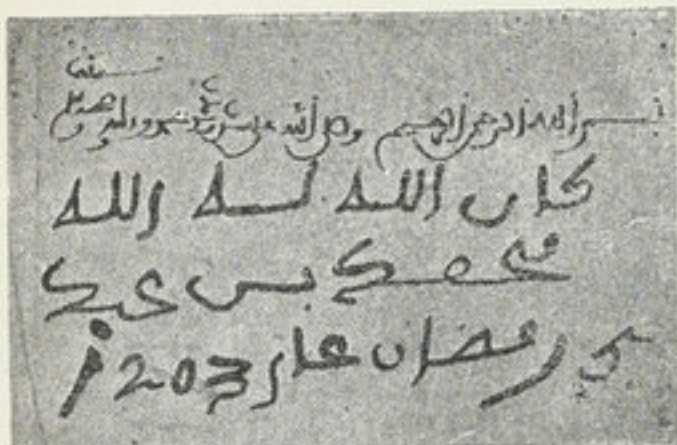 بسم الله الرحمن الرحيم وصلى الله على سيدنا محمد وآله وصحبه
كان الله له الله
محمد بن عبد
في رمضان عام 1203